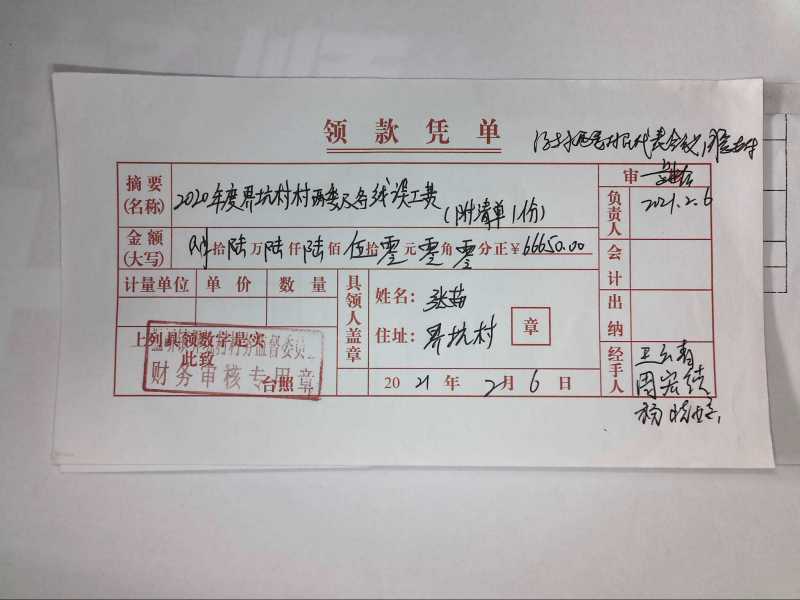 领款凭单
村民代表会议,同意支付
摘要
(名称)
2020年度界坑村村两委及各线误工费
(附清单1份)
审
负责人
2021.2.6
金额
(大写)
拾陆万陆仟陆佰伍拾零元零角零分正¥66650.00
会计
计量单位 单价 数量
具领人盖章
姓名:张茹
住址:界坑村
章
出纳
上列具领数字是实
此致
台照
村务监督委员
财务审核专用章
2021年2月6日
经手人
周宏
杨晓